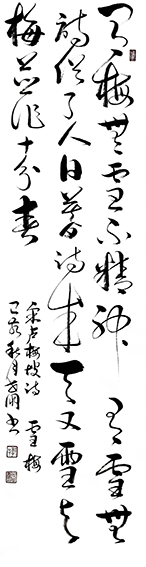 有梅無雪不精神有雪無
詩俗了人日暮詩成天又雪與
梅並作十分春
宋卢梅坡诗 雪梅
己亥秋月书